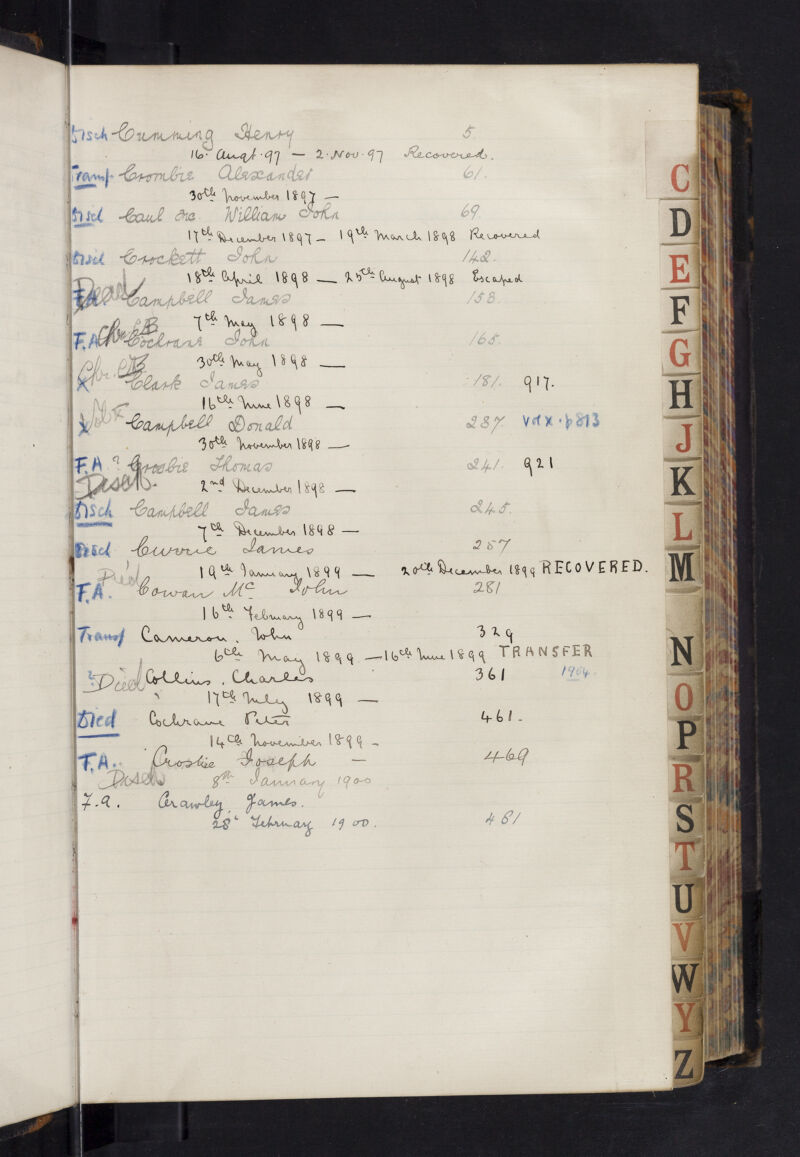 Disch Cumming Henry 5
16. Augt. 97 — 2. Nov. 97 Recovered.
Transf Crombie Alexander 61.
30th November 1897 —
Disd Caul Mc William John 69
17th December 1897 — 19th March 1898 Recovered
Crockett John 142.
18th April 1898 — 25th August 1898 Escaped
Dead
F.A. Campbell James 158.
7th May 1898 —
F.A. Cochrane John 165.
30th May 1898 —
x Clark James 181. 917.
16th June 1898 —
x Campbell Donald 237 Vol X. p813
30th November 1898 —
F.A ? Crosbie Thomas 241. 921
Disch. 2nd December 1898 —
Disch Campbell James 245.
7th December 1898 —
Disd Currie James 257
19th January 1899 — 20th December 1899 RECOVERED.
Died
F.A. Cowan Mc John 281
16th February 1899 —
Transf Cameron, John 329
6th May 1899 — 16th June 1899 TRANSFER
? Died Collins, Charles 361 1904.
17th July 1899 —
Died Cochrane Peter 461.
14th November 1899 -
F.A. Crosbie Joseph — 469
Disch 8th January 1900
F.A. Crawley, James.
28th February 1900. 481
C
D
E
F
G
H
J
K
L
M
N
O
P
R
S
T
U
V
W
Y
Z